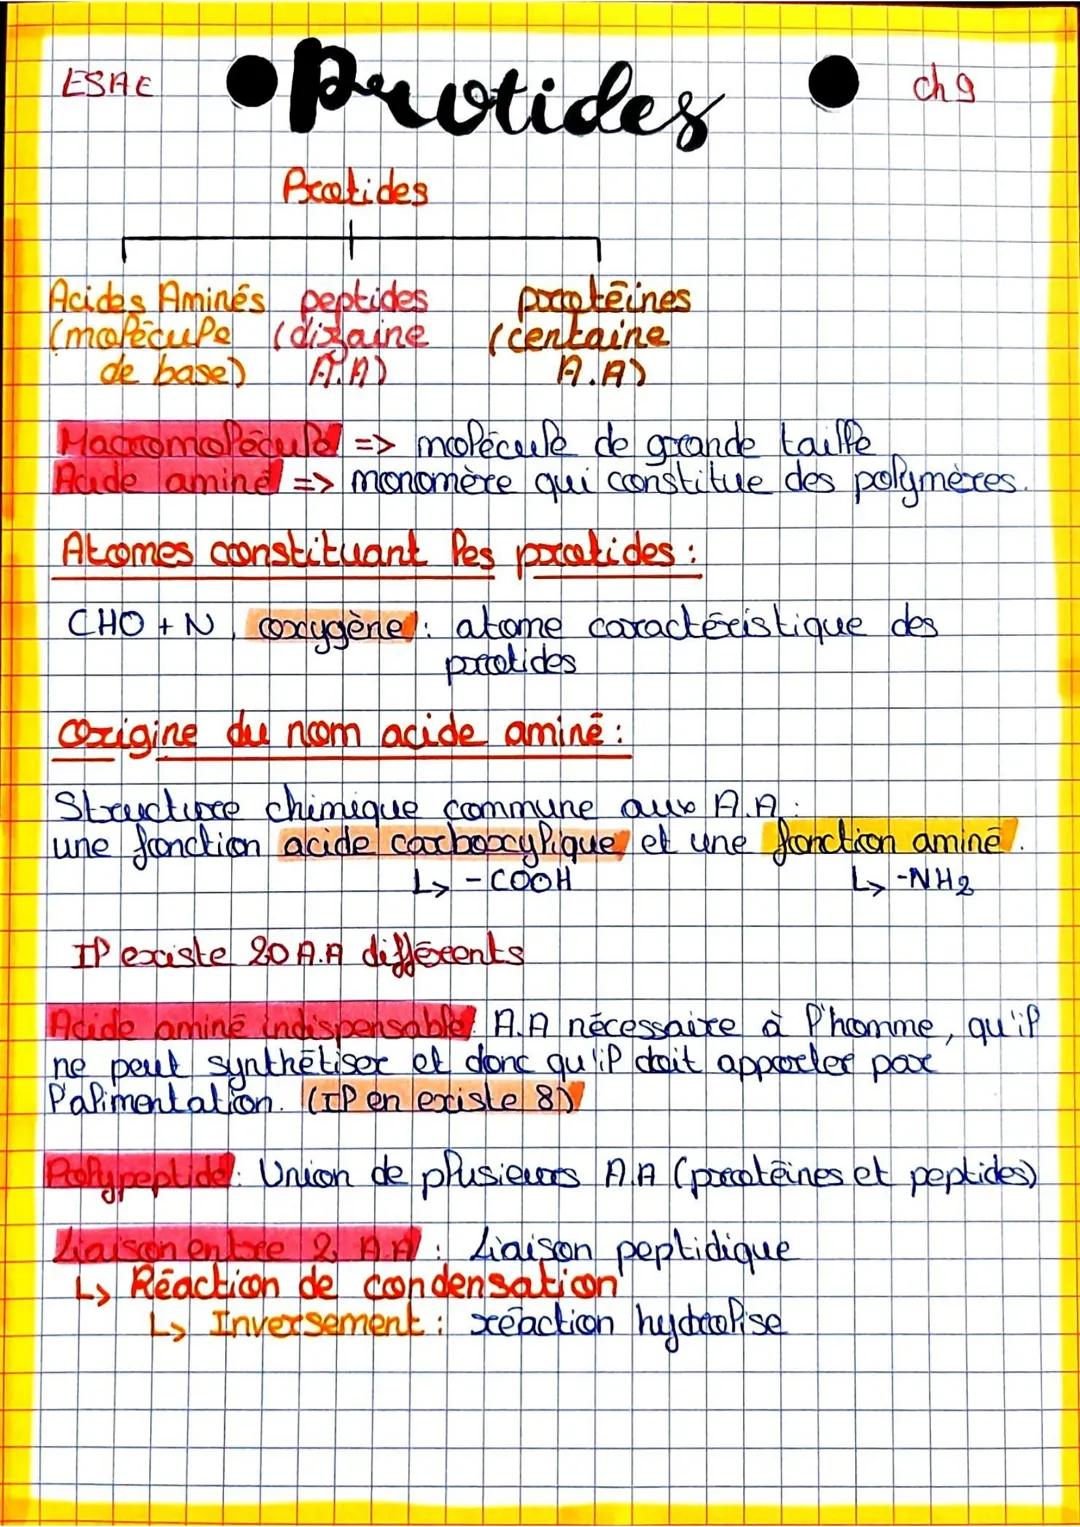 ESAE
Protides
ch 9
Protides
Acides Aminés peptides protéines
(molécule (dizaine (centaine
de base) A.A) A.A)
Macromolécule => molécule de grande taille
Acide aminé => monomère qui constitue des polymères.
Atomes constituant les protides :
CHO + N, oxygène : atome caractéristique des
protides
Origine du nom acide aminé :
Structure chimique commune aux A.A :
une fonction acide carboxylique et une fonction aminé.
↳ -COOH ↳ -NH2
Il existe 20 A.A différents
Acide aminé indispensable : A.A nécessaire à l'homme, qu'il
ne peut synthétiser et donc qu'il doit apporter par
l'alimentation. (Il en existe 8)
Polypeptide : Union de plusieurs A.A (protéines et peptides)
Liaison entre 2 A.A : Liaison peptidique
↳ Réaction de condensation
↳ Inversement : réaction hydrolise